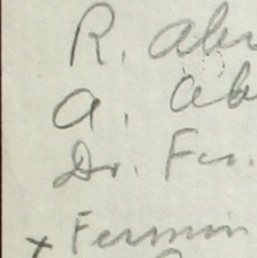 R. Abr
A. Ab
Dr. Fer.
x Fermin